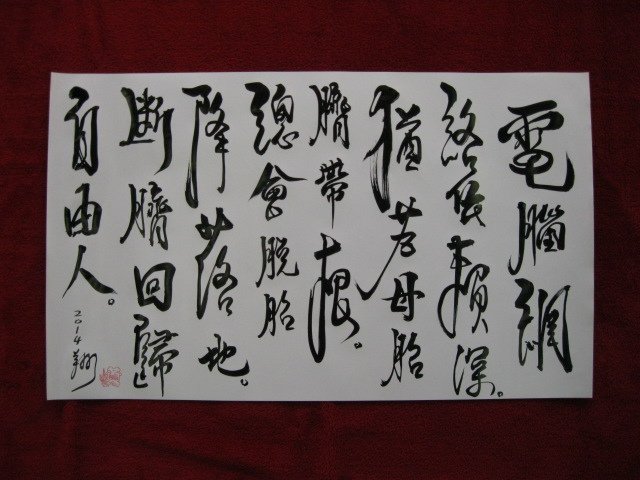 電腦網
絡依賴深。
猶若母胎
臍帶根。
總會脫胎
降落地。
斷臍回歸
自由人。
2014